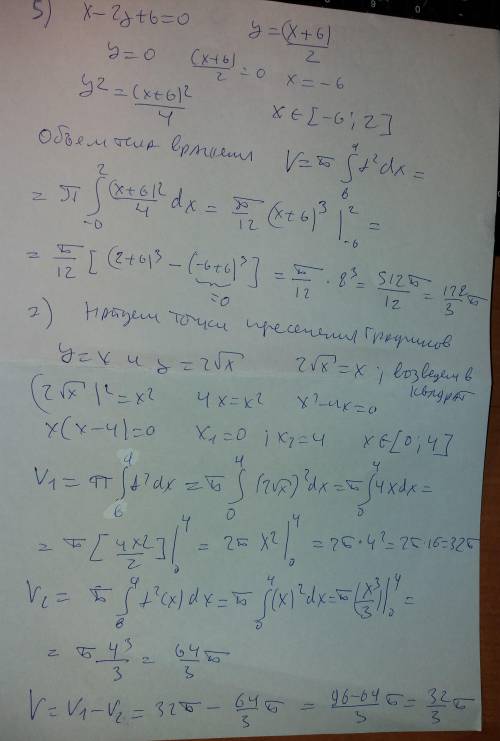 5) x-2y+6=0 y=(x+6)/2
y=0 (x+6)/2=0 x=-6
y²=(x+6)²/4 x∈[-6;2]
Объем тела вращения V=π∫ₐᵇ f²dx=
=π∫₋₀² (x+6)²/4 dx= π/12 (x+6)³|₋₆²=
=π/12 [(2+6)³-(-6+6)³]=π/12·8³=512π/12=128/3π
=0
2) Найдем точки пресечения графиков
y=x и y=2√x 2√x=x; возведем в
квадрат
(2√x)²=x² 4x=x² x²-4x=0
x(x-4)=0 x₁=0; x₂=4 x∈[0;4]
V₁=π∫ f²dx=π∫₀⁴(2√x)²dx=π∫₀⁴4xdx=
=π[4x2/2]|₀⁴=2πx²|₀⁴=2π·4²=2π·16=32π
V₂=π∫ f²(x)dx=π∫₀⁴(x)²dx=π(x³/3)|₀⁴=
=π 4³/3=64/3π
V=V₁-V₂=32π-64/3π=96-64/3π=32/3π